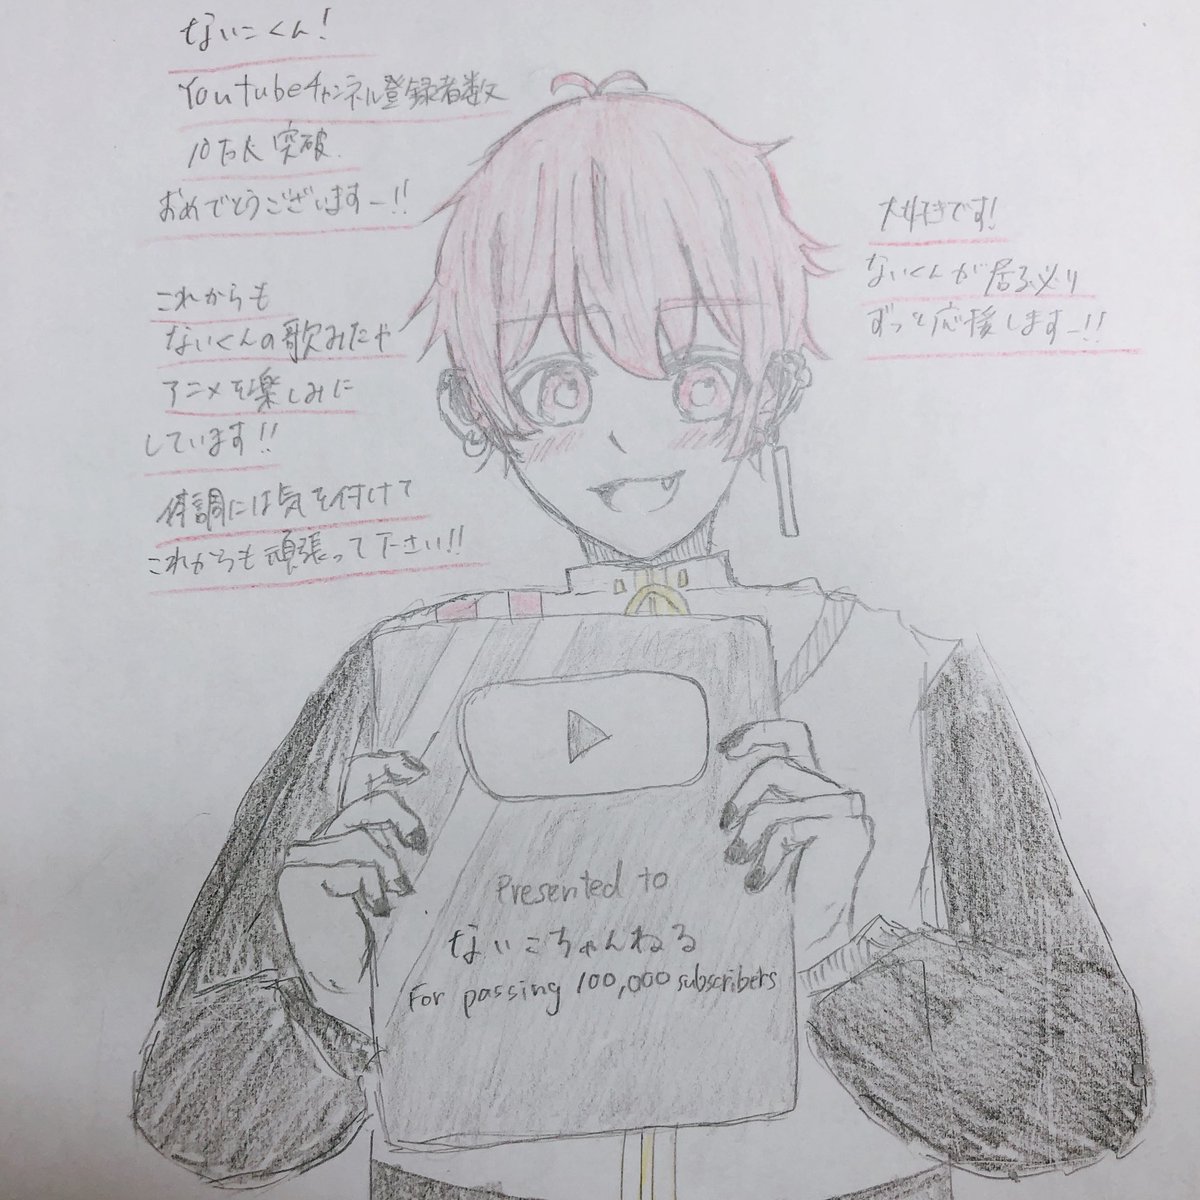 ないこくん!
Youtubeチャンネル登録者数
10万人突破
おめでとうございますー!!
これからも
ないくんの歌みたや
アニメを楽しみに
しています!!
体調には気を付けて
これからも頑張って下さい!!
大好きです!
ないくんが居る必り
ずっと応援しますー!!
Presented to
ないこちゃんねる
For passing 100,000 subscribers